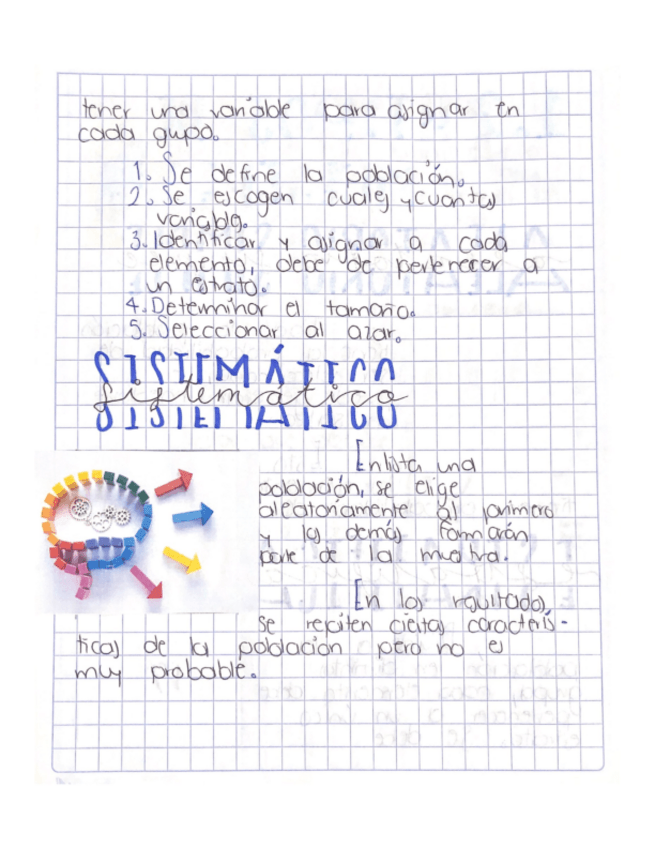 tener una variable para asignar en
cada gupo.
1. Se define la población.
2. Se escogen cuales y cuantas
variable.
3. Identificar y asignar a cada
elemento, debe de pertenecer a
un estrato.
4. Determinar el tamaño.
5. Seleccionar al azar.
SISTEMÁTICO
sistemático
Enlista una
población, se elige
aleatoriamente al primero
y los demás formarán
parte de la muestra.
En los resultados,
se repiten ciertas caracterís-
ticas de la población pero no es
muy probable.